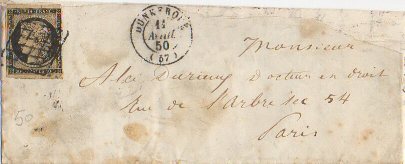 DUNKERQUE
11
AVRIL
50
(57)
Monsieur
A. de Docteur en droit
Rue de l'Arbre Sec 54
Paris
50